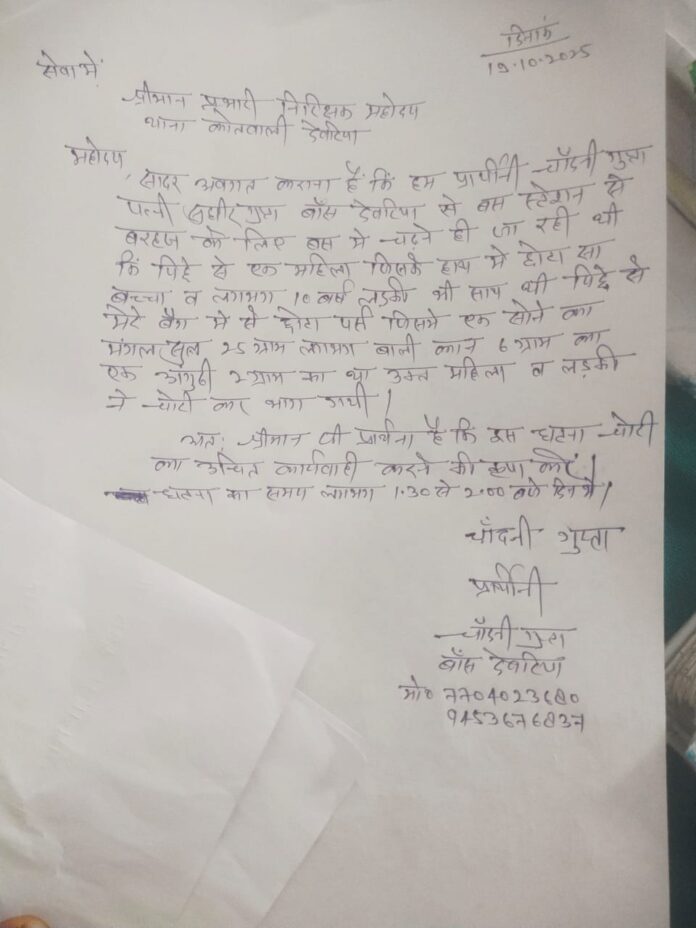 दिनांक
19.10.2025
सेवा में
श्रीमान प्रभारी निरिक्षक महोदय
थाना कोतवाली देवरिया
महोदय,
सादर अवगत कराना है कि हम प्रार्थीनी चाँदनी गुप्ता
पत्नी सुधीर गुप्ता बाँस देवरिया से बस स्टेशन से
बरहज के लिए बस मे चढने ही जा रही थी
कि पिछे से एक महिला जिसके हाथ मे छोटा सा
बच्चा व लगभग 10 वर्ष लडकी भी साथ थी पिछे से
मेरे बैग मे से छोटा पर्स जिसमे एक सोने का
मंगल सुत्र 25 ग्राम लगभग बाली कान 6 ग्राम का
एक अंगुठी 2 ग्राम का था उक्त महिला व लडकी
ने चोरी कर भाग गयी।
अतः श्रीमान जी प्रार्थना है कि इस घटना चोरी
का उचित कार्यवाही करने की कृपा करें।
घटना का समय लगभग 1.30 से 2.00 बजे दिन मे।
चाँदनी गुप्ता
प्रार्थीनी
चाँदनी गुप्ता
बाँस देवरिया
मो० 7704023680
9453676837